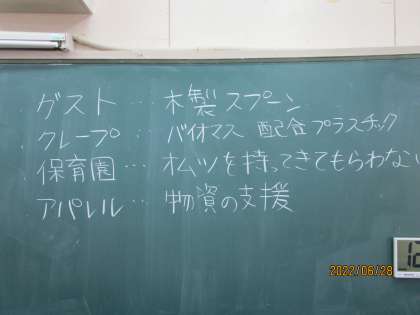 ゲスト … 木製スプーン
クレープ … バイオマス 配合プラスチック
保育園 … オムツを持ってきてもらわない
アパレル … 物資の支援
2022/06/28